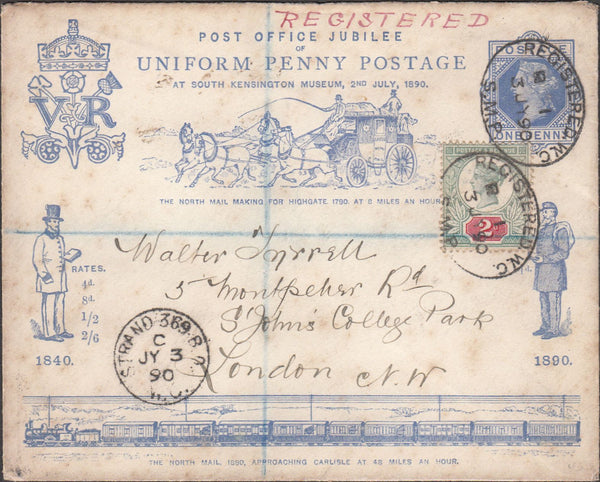 REGISTERED
POST OFFICE JUBILEE
OF
UNIFORM PENNY POSTAGE
AT SOUTH KENSINGTON MUSEUM, 2ND JULY, 1890.
V R
POSTAGE
ONE PENNY
REGISTERED W.C.
3 JY 90
THE NORTH MAIL MAKING FOR HIGHGATE 1790. AT 8 MILES AN HOUR.
2d
REGISTERED W.C.
3 JY 90
RATES.
4d.
8d.
1/2
2/6
1840.
1890.
Walter Tyrrell
5 Montpelier Rd
St John's College Park
London N.W
STRAND 369.B.O.
C
JY 3
90
W.C.
THE NORTH MAIL, 1890, APPROACHING CARLISLE AT 48 MILES AN HOUR.